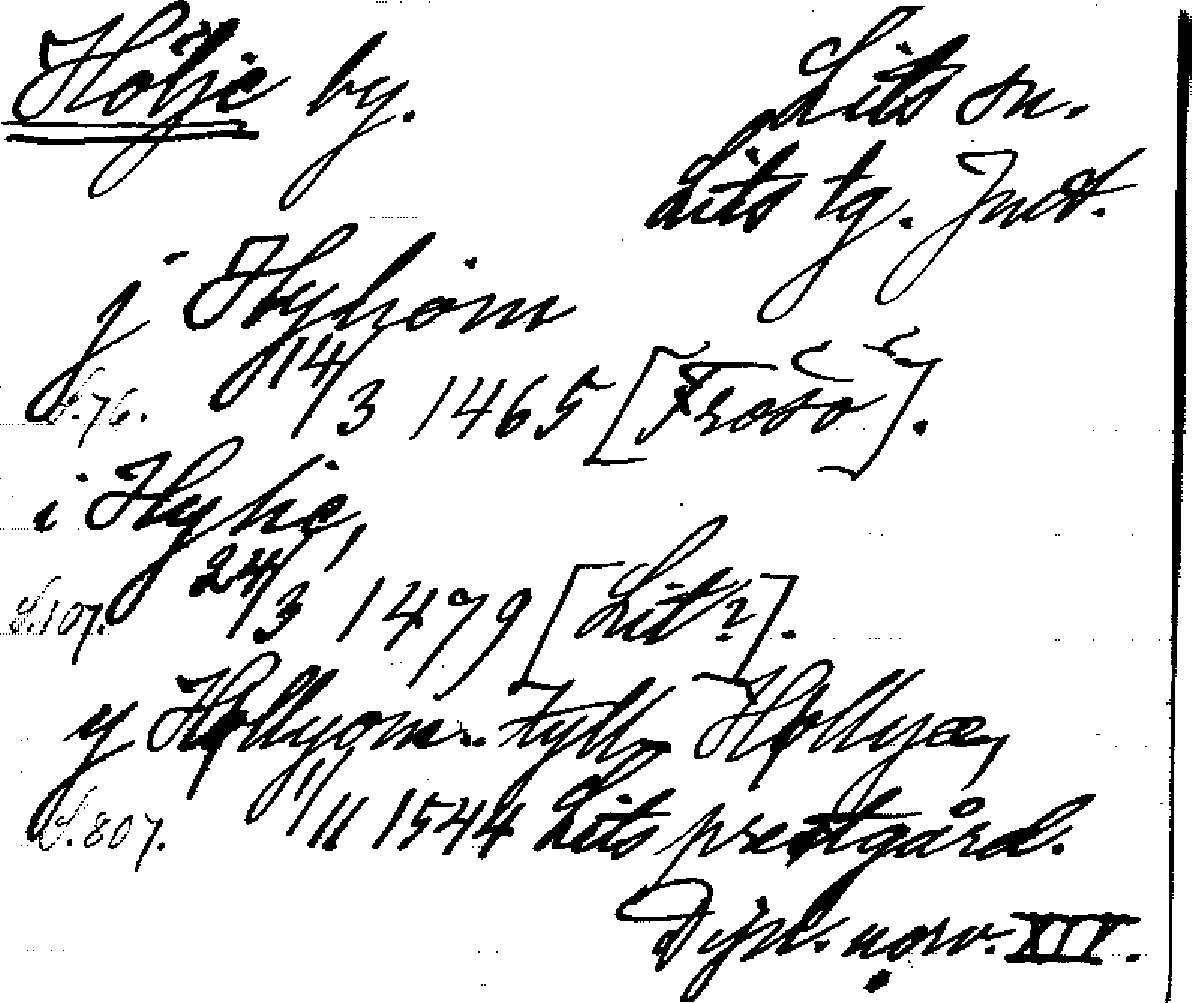 Hölje by. Lits sn.
Lits tg. Jmtl.
j Hyliom
S. 76. 14/3 1465 [Frösö].
i Hylie,
S. 107. 24/3 1479 [Lit?].
y Høllyom.. tyll Høllyæ,
S. 807. 1/11 1544 Lits prestgård.
Dipl. norv. XIV.